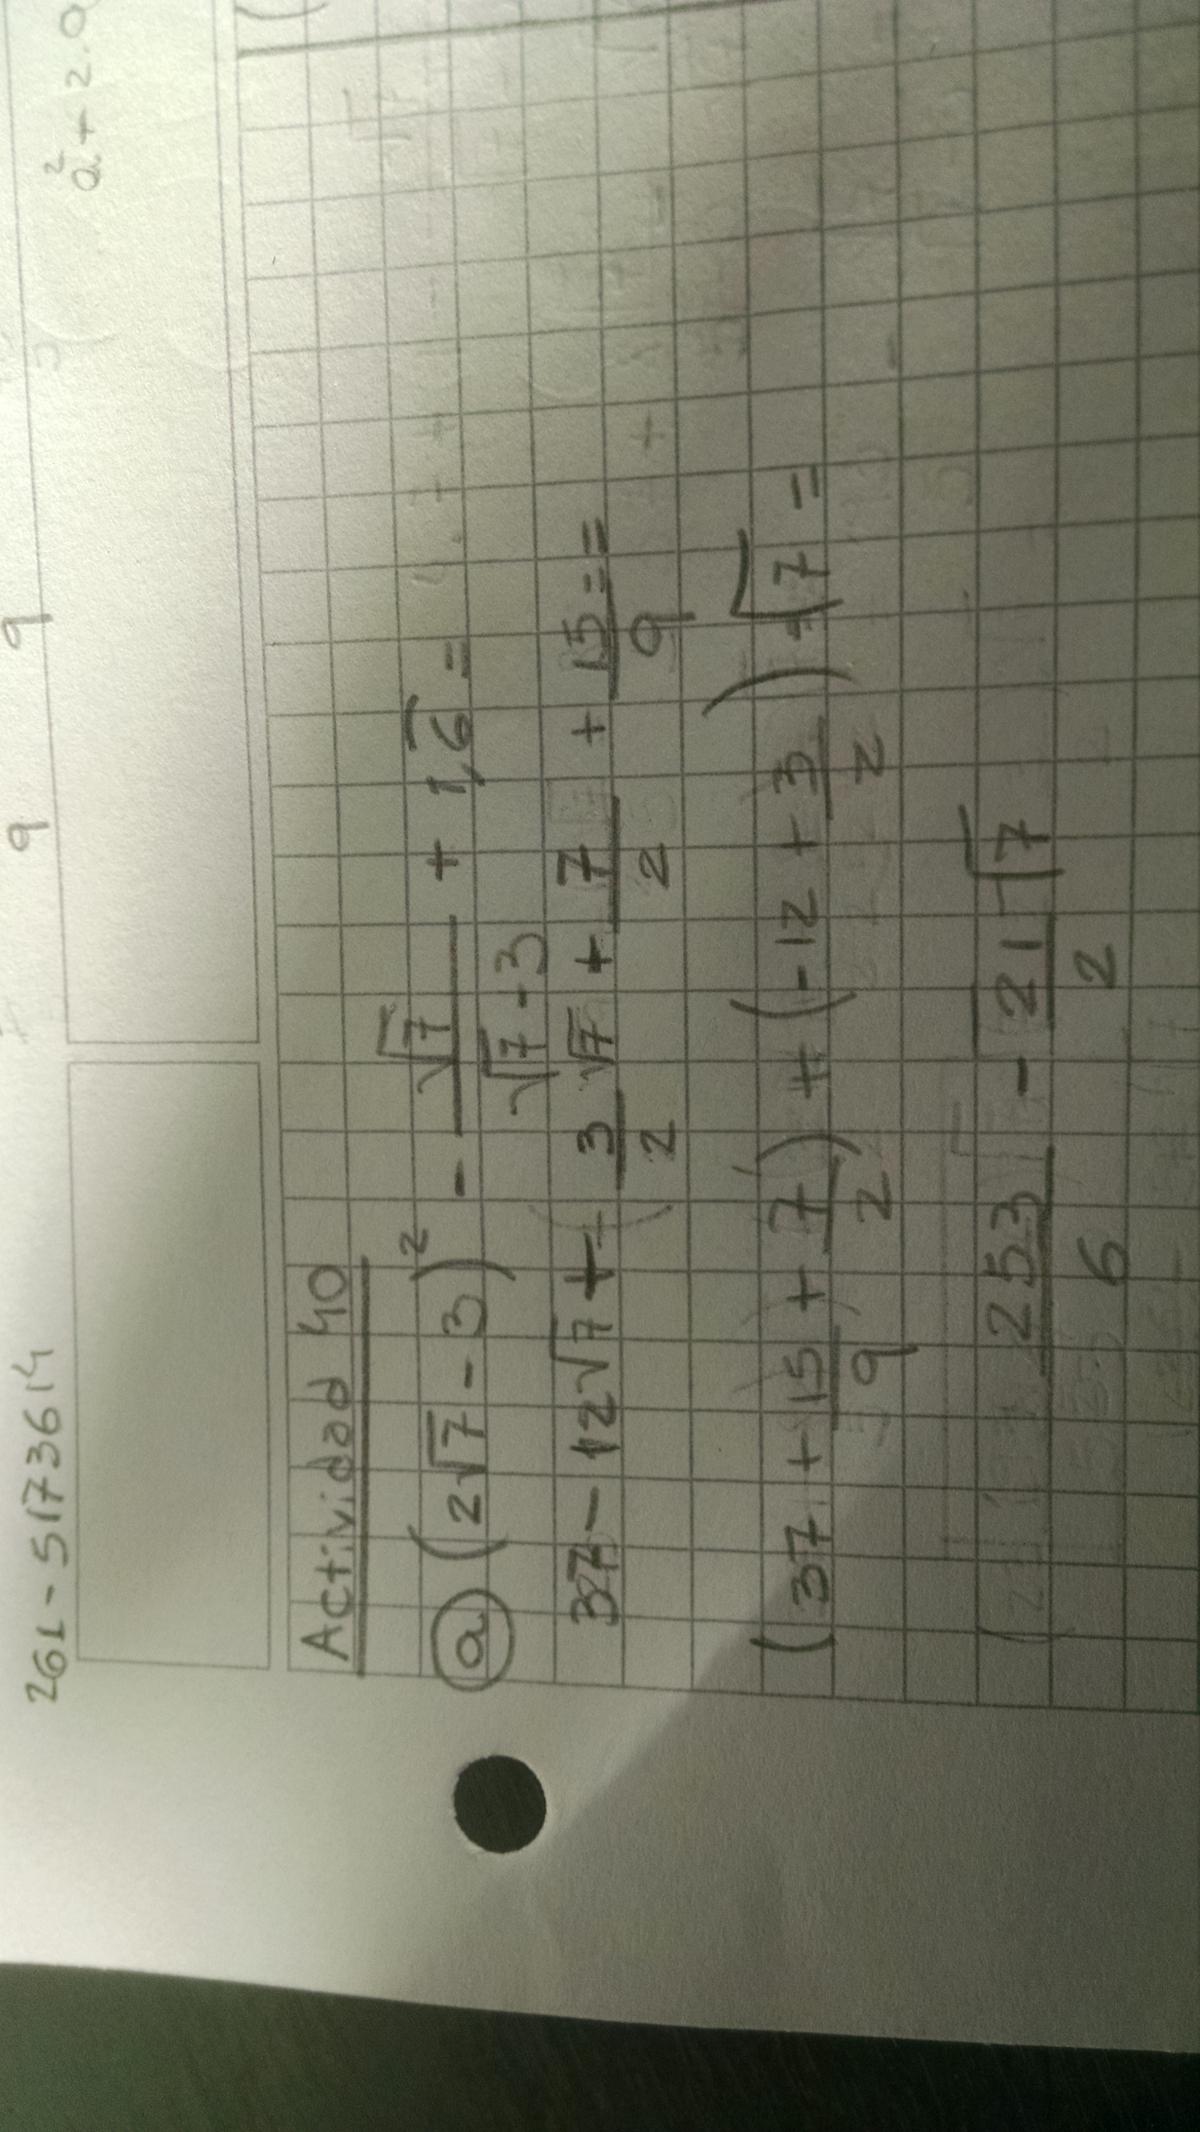 261-5173614
9 9
a² + 2.a
Actividad 40
a (2√7 - 3)² - √7/(√7 - 3) + 1,6̅ =
37 - 12√7 + 3/2 √7 + 7/2 + 15/9 ==
(37 + 15/9 + 7/2) + (-12 + 3/2) √7 =
253/6 - 21/2 √7